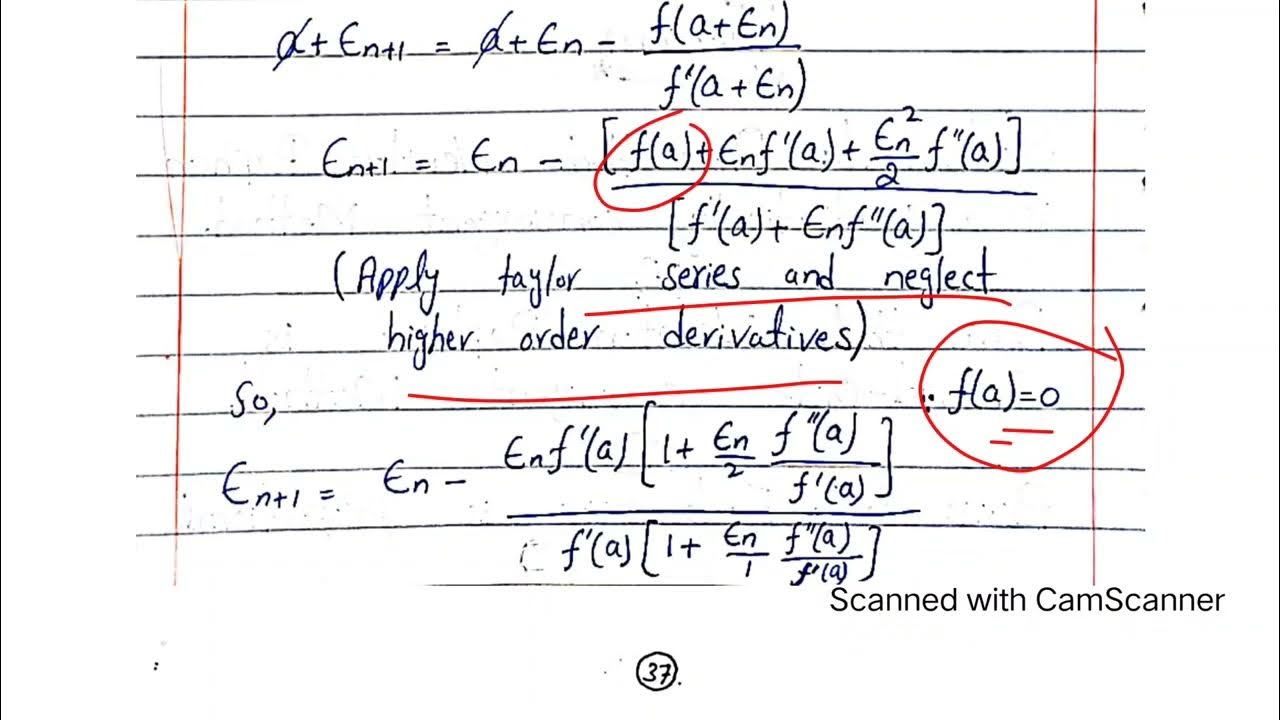 a + ϵn+1 = a + ϵn - f(a+ϵn) / f'(a+ϵn)
ϵn+1 = ϵn - [f(a) + ϵn f'(a) + ϵn²/2 f''(a)] / [f'(a) + ϵn f''(a)]
(Apply taylor series and neglect
higher order derivatives)
So, ∵ f(a)=0
ϵn+1 = ϵn - ϵn f'(a) [1 + ϵn/2 f''(a)/f'(a)] / f'(a) [1 + ϵn/1 f''(a)/f'(a)]
Scanned with CamScanner
37.